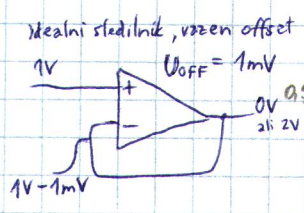 idealni sledilnik, vazen offset
U_OFF = 1mV
1V
+
−
0V
ali 2V
1V-1mV